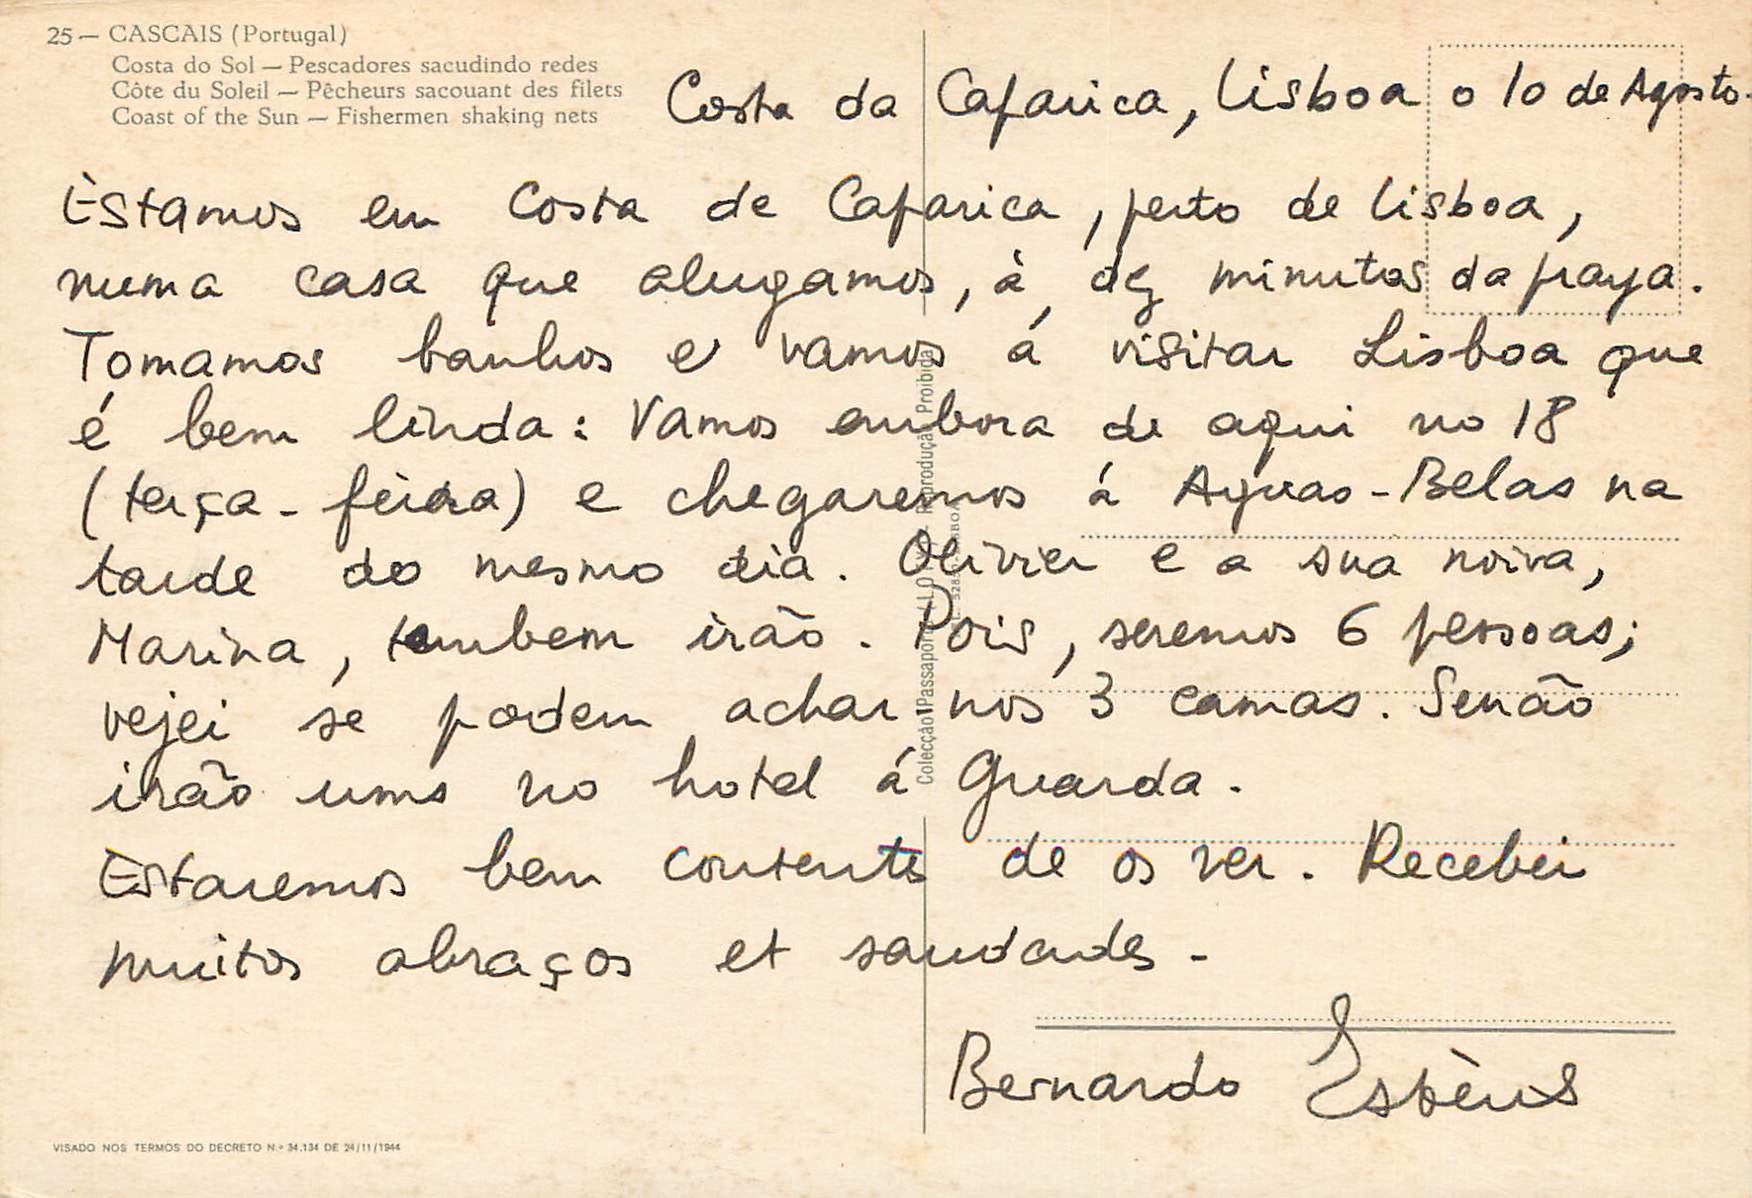 25 — CASCAIS (Portugal)
Costa do Sol — Pescadores sacudindo redes
Côte du Soleil — Pêcheurs sacouant des filets
Coast of the Sun — Fishermen shaking nets
Costa da Cafarica, Lisboa o 10 de Agosto.
Èstamos em Costa de Cafarica, perto de Lisboa,
numa casa que alugamos, à dez minutos da praya.
Tomamos banhos e vamos á visitar Lisboa que
é bem linda: Vamos embora de aqui no 18
(terça-feira) e chegaremos á Aguas-Belas na
tarde do mesmo dia. Olivier e a sua noiva,
Marina, tambem irão. Pois, seremos 6 pessoas;
vejei se podem achar nos 3 camas. Senão
irão ums no hotel á Guarda.
Estaremos bem contents de os ver. Recebei
muitos abraços et saudades.
Bernardo Estèus
Colecção Passaporte LOTY - Reprodução Proibida
VISADO NOS TERMOS DO DECRETO N.º 34.134 DE 24/11/1944